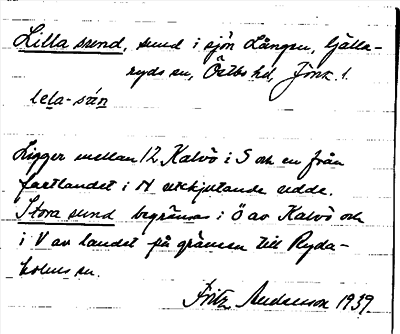 Lilla sund, sund i sjön Lången, Gälla-
ryds sn, Östbo hd, Jönk. l.
lela-sún
Ligger mellan 12 Kalvö i S och en från
fastlandet i N utskjutande udde.
Stora sund begränsas i Ö av Kalvö och
i V av landet på gränsen till Ryda-
holms sn.
Fritz Andersson 1939